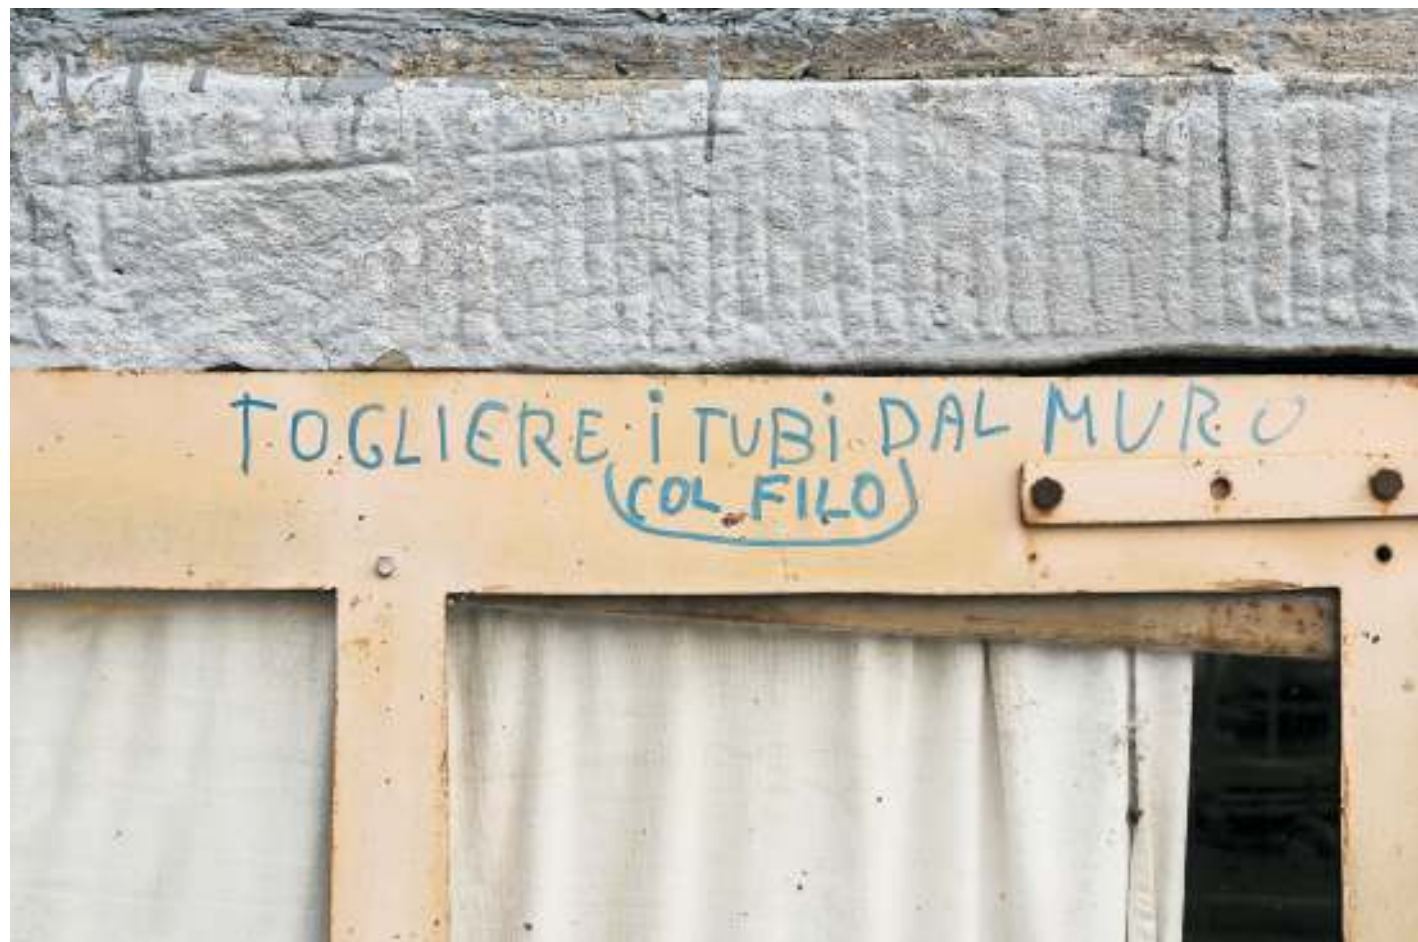 TOGLIERE i TUBi DAL MURO
(COL FILO)